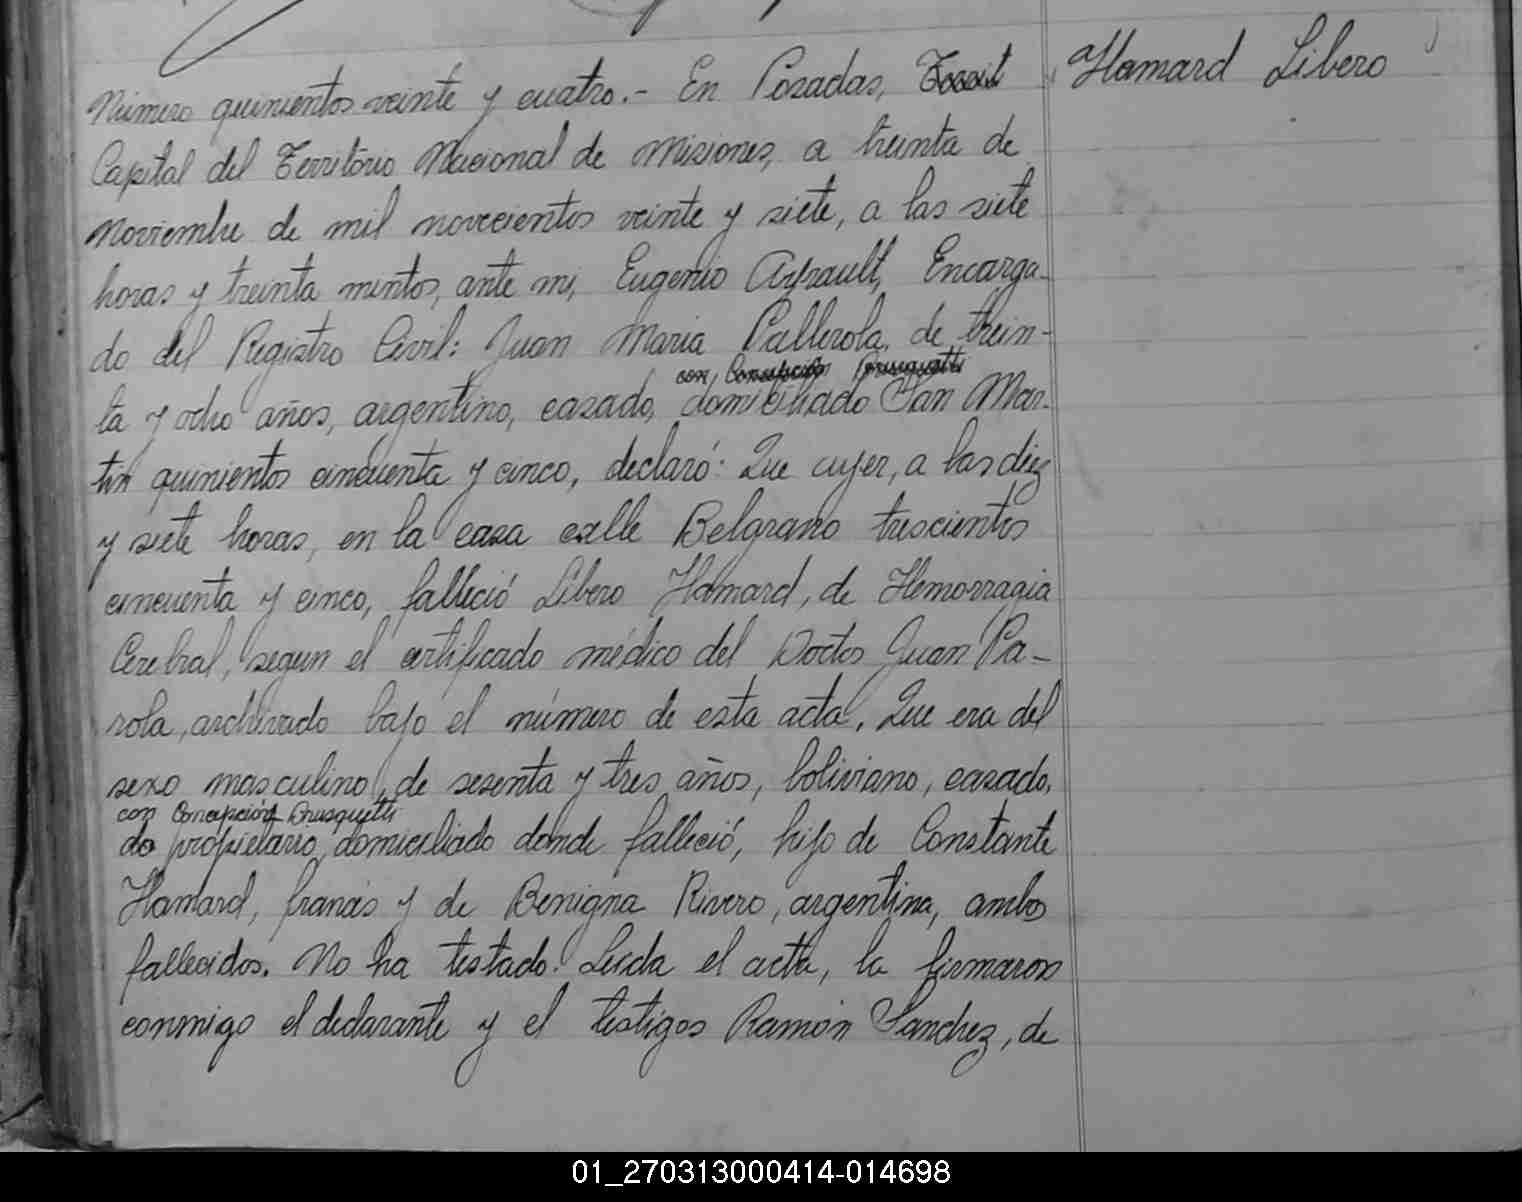 Hamard Libero
Número quinientos veinte y cuatro.- En Posadas, Territ
Capital del Territorio Nacional de Misiones, a treinta de
Noviembre de mil novecientos veinte y siete, a las siete
horas y treinta mintos, ante mi, Eugenio Ayrault, Encarga-
do del Registro Civil: Juan Maria Pallerola, de trein-
con Concepción Brusquetti
ta y ocho años, argentino, casado, domiciliado San Mar-
tin quinientos cincuenta y cinco, declaró: Que ayer, a las diez
y siete horas, en la casa calle Belgrano trescientos
cincuenta y cinco, falleció Libero Hamard, de Hemorragia
Cerebral, segun el certificado médico del Doctor Juan Pa-
rola, archivado bajo el número de esta acta. Que era del
sexo masculino, de sesenta y tres años, boliviano, casado,
con Concepción Brusquetti
do propietario, domiciliado donde falleció, hijo de Constante
Hamard, francés y de Benigna Rivero, argentina, ambos
fallecidos. No ha testado. Leida el acta, la firmaron
conmigo el declarante y el testigos Ramón Sanchez, de
01_270313000414-014698